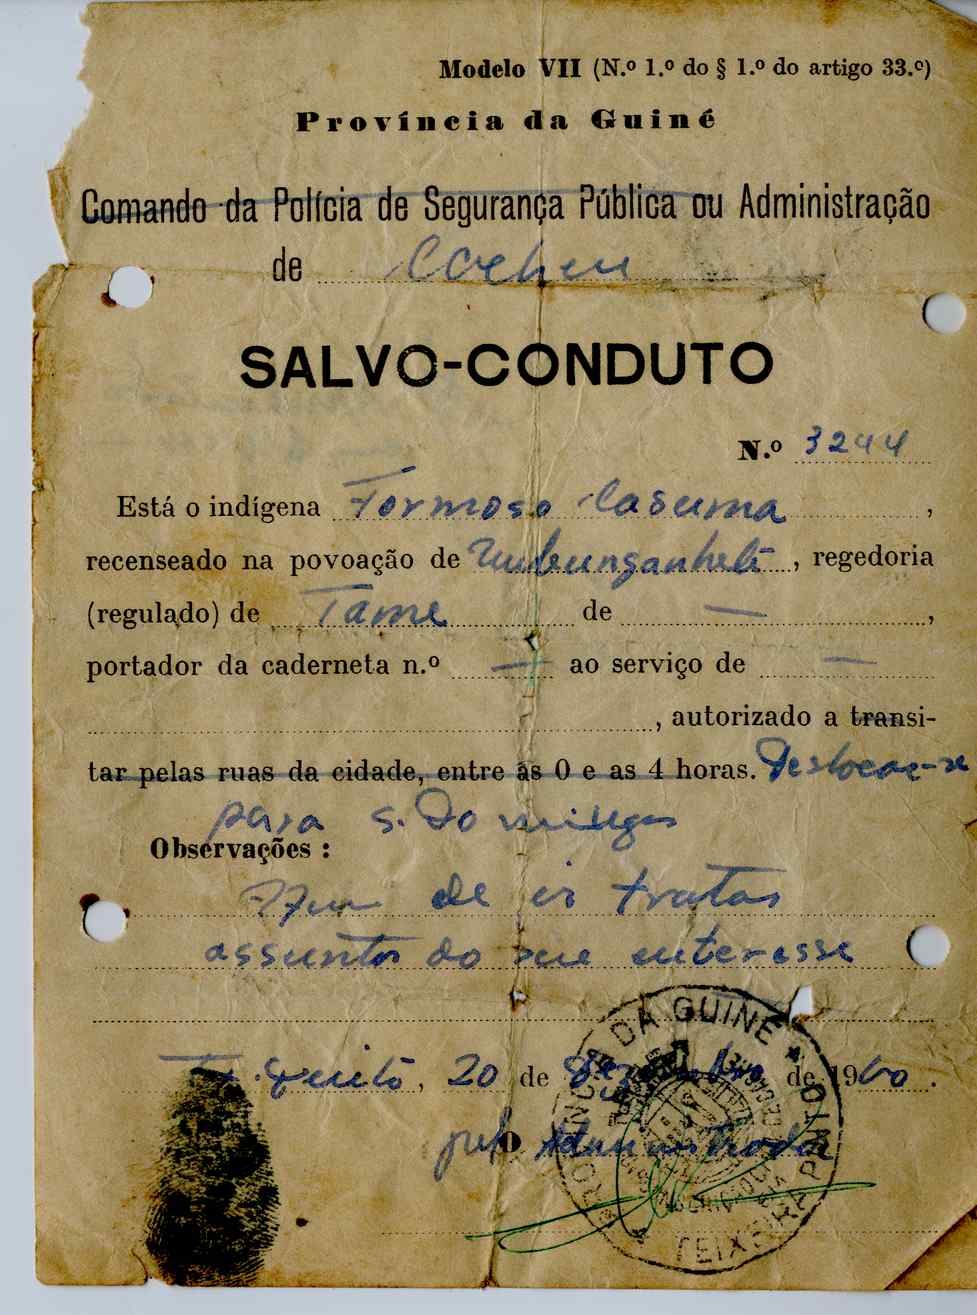 Modelo VII (N.º 1.º do § 1.º do artigo 33.º)
Província da Guiné
Comando da Polícia de Segurança Pública ou Administração
de Cacheu
SALVO-CONDUTO
N.º 3244
Está o indígena Formoso Casuma,
recenseado na povoação de, regedoria
(regulado) de Tame de —,
portador da caderneta n.º — ao serviço de —
, autorizado a transi-
tar pelas ruas da cidade, entre as 0 e as 4 horas. Deslocar-se
para S. Domingos
Observações:
Afim de ir tratar
assuntos do seu interesse
T. Pinto, 20 de Dezembro de 1960.
pelO Administrador
PROVINCIA DA GUINÉ * TEIXEIRA PINTO